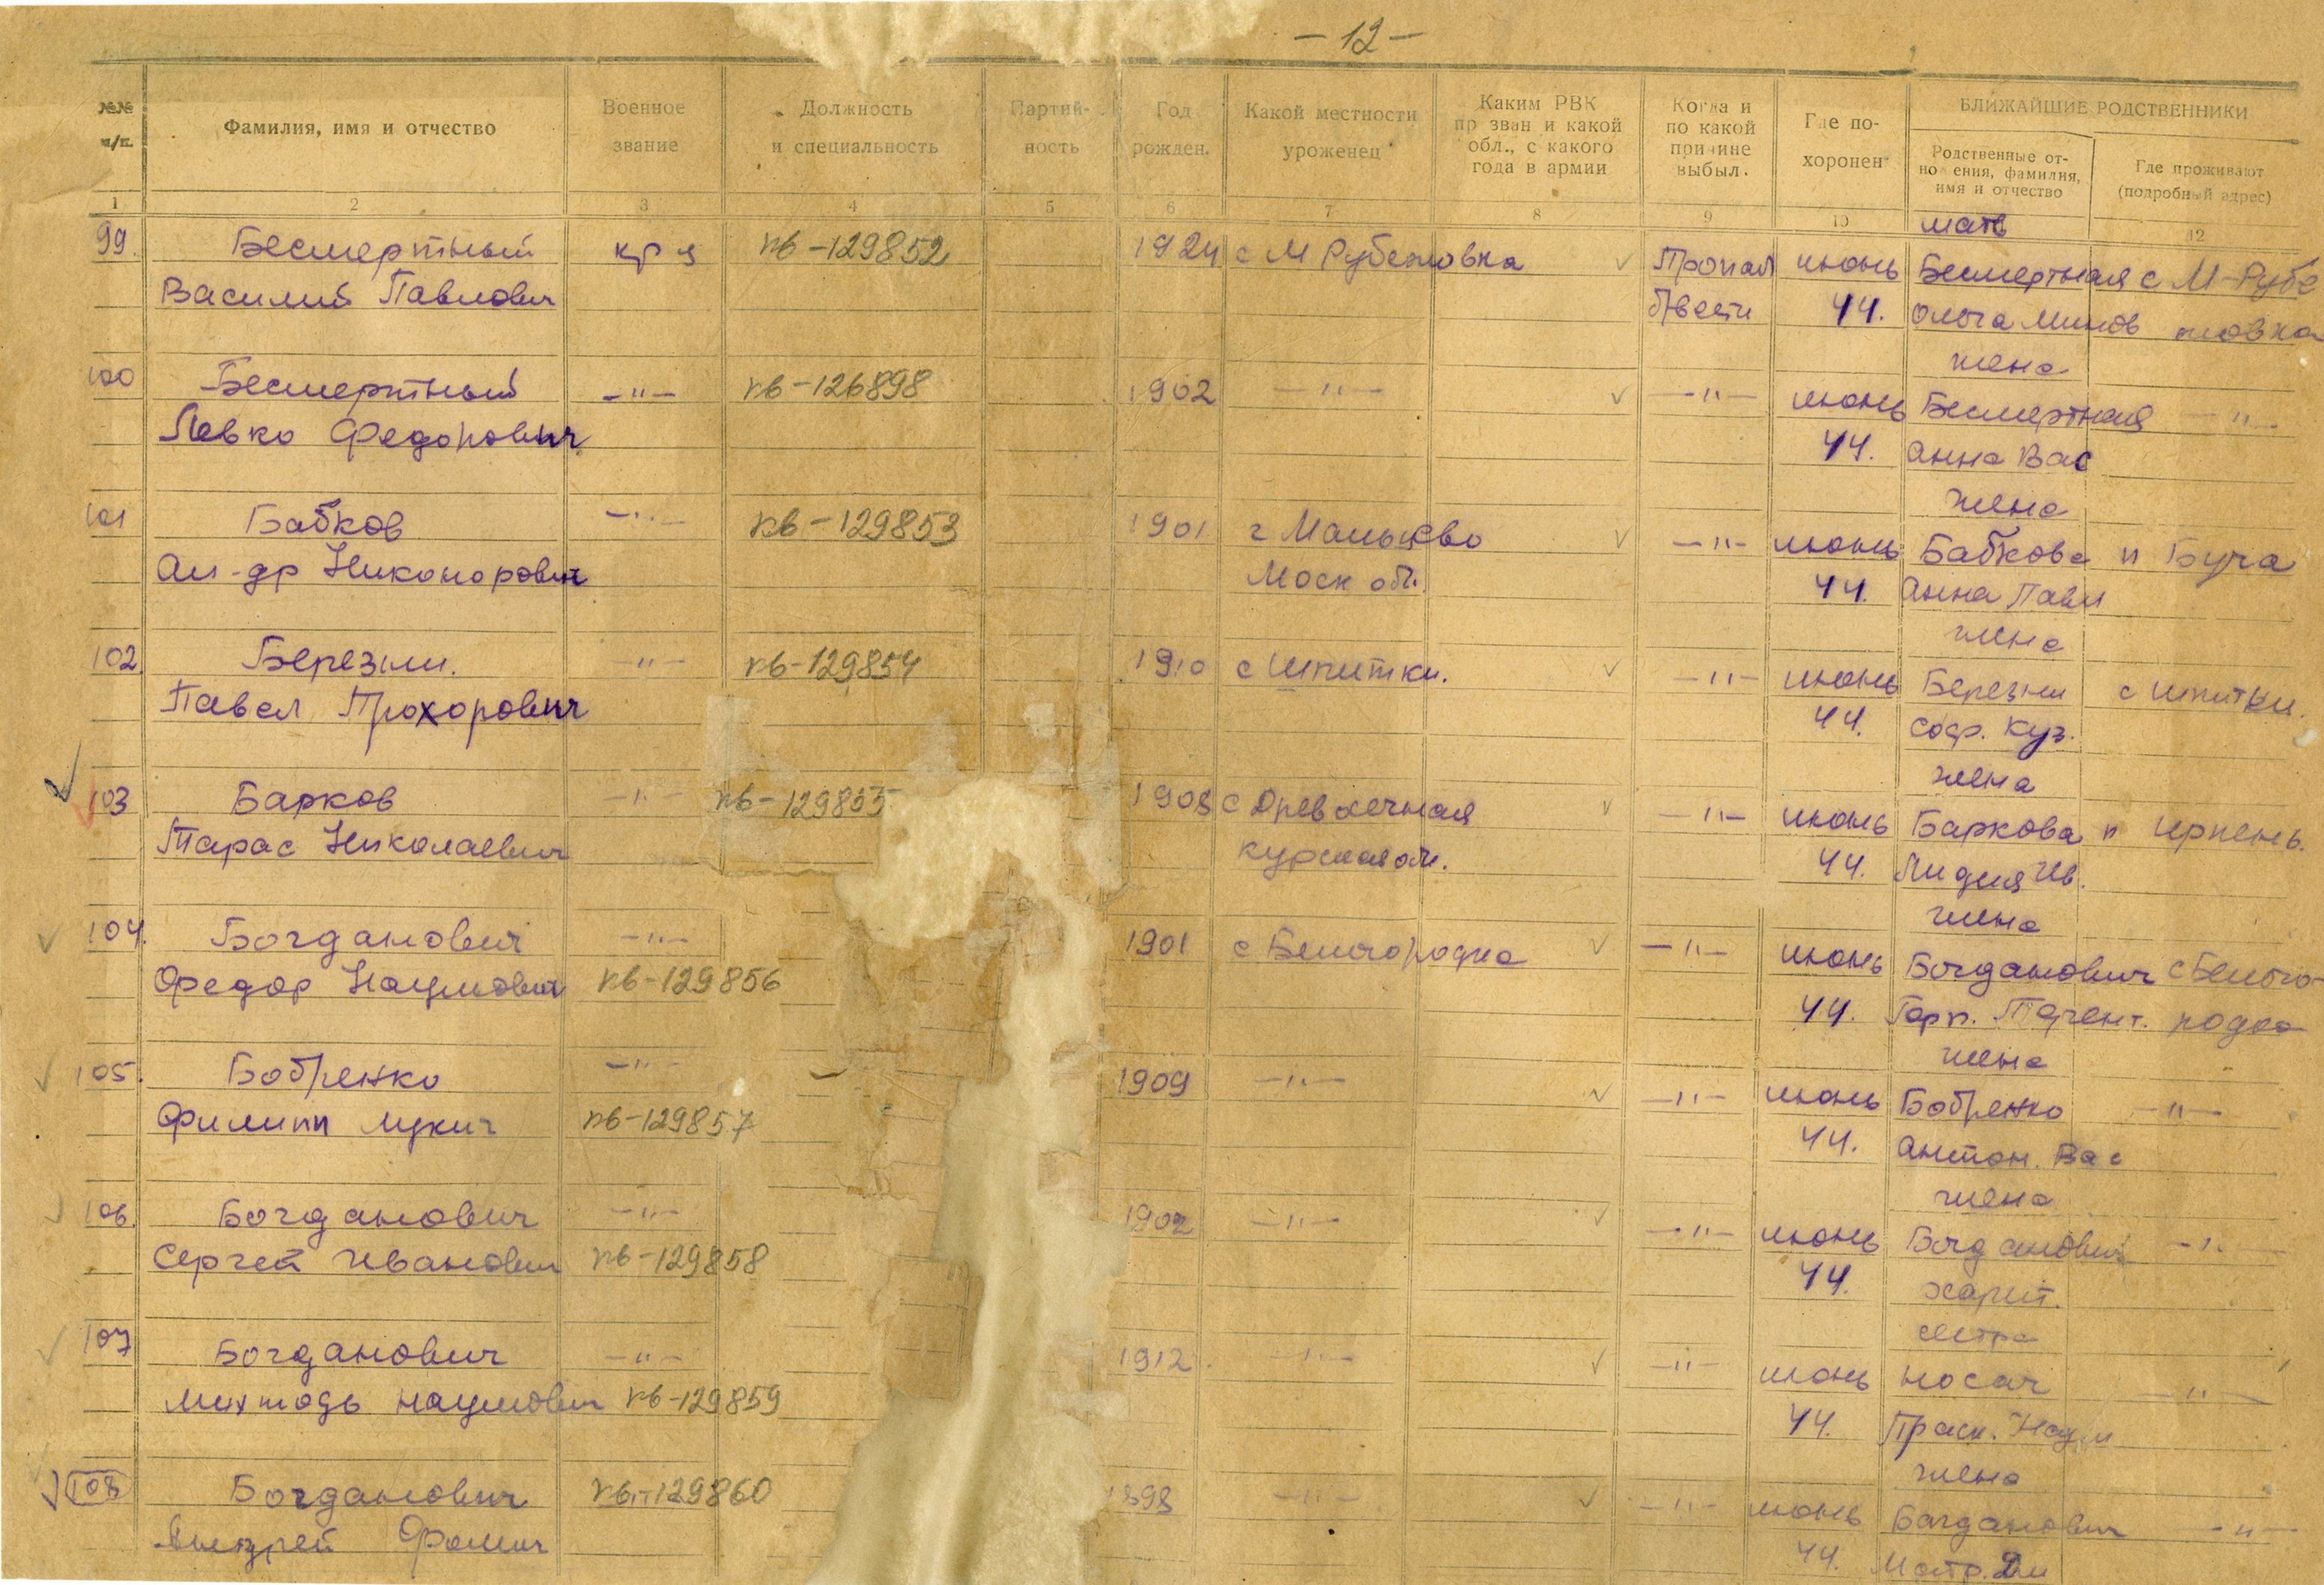 - 12 -
№№ п/п.
Фамилия, имя и отчество
Военное звание
Должность и специальность
Партий-ность
Год рожден.
Какой местности уроженец
Каким РВК пр зван и какой обл., с какого года в армии
Когда и по какой причине выбыл.
Где по-хоронен
БЛИЖАЙШИЕ РОДСТВЕННИКИ
Родственные от-но ения, фамилия, имя и отчество
Где проживают (подробный адрес)
1 2 3 4 5 6 7 8 9 10 12
мать
99. Бесмертный кр-ц кв-129852 1924 с М Рубежовка Пропал июнь Бесмертная с М-Рубе
Василий Павлович б/вести 44. Ольга Минов жовка
жена
100 Бесмертный -"- кв-126898 1902 -"- -"- июнь Бесмертная -"-
Левко Федорович 44. Анна Вас
жена
101 Бабков -"- кв-129853 1901 Моск обл. -"- июнь Бабкова п Буча
Ал-др Никонорович 44. Анна Павл
жена
102. -"- кв-129854 1910 с Шпитки. -"- июнь с Шпитки.
Павел Прохорович 44. Соф. Куз.
жена
103 Барков -"- кв-129855 1908 с -"- июнь Баркова п Ирпень.
Тарас Николаевич 44. Лидия Ив.
жена
104. Богданович -"- 1901 с Белгородка -"- июнь Богданович с Белого-
Федор Наумович кв-129856 44. Гарп. Терент. родка
жена
105. Бобренко -"- 1909 -"- -"- июнь Бобренко -"-
Филипп Лукич кв-129857 44. Антон. Вас
жена
106. Богданович -"- 1902 -"- -"- июнь Богданович -"-
Сергей Иванович кв-129858 44. Харит.
сестра
107 Богданович -"- 1912. -"- -"- июнь Носач -"-
Наумович кв-129859 44. Праск. Наум
жена
108 Богданович кв-129860 1898 -"- -"- июнь Богданович -"-
Андрей Фомич 44. Мотр.